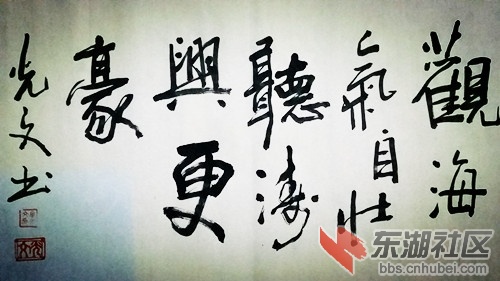 觀海
氣自壯
聽濤
興更
豪
光文书
东湖社区
bbs.cnhubei.com